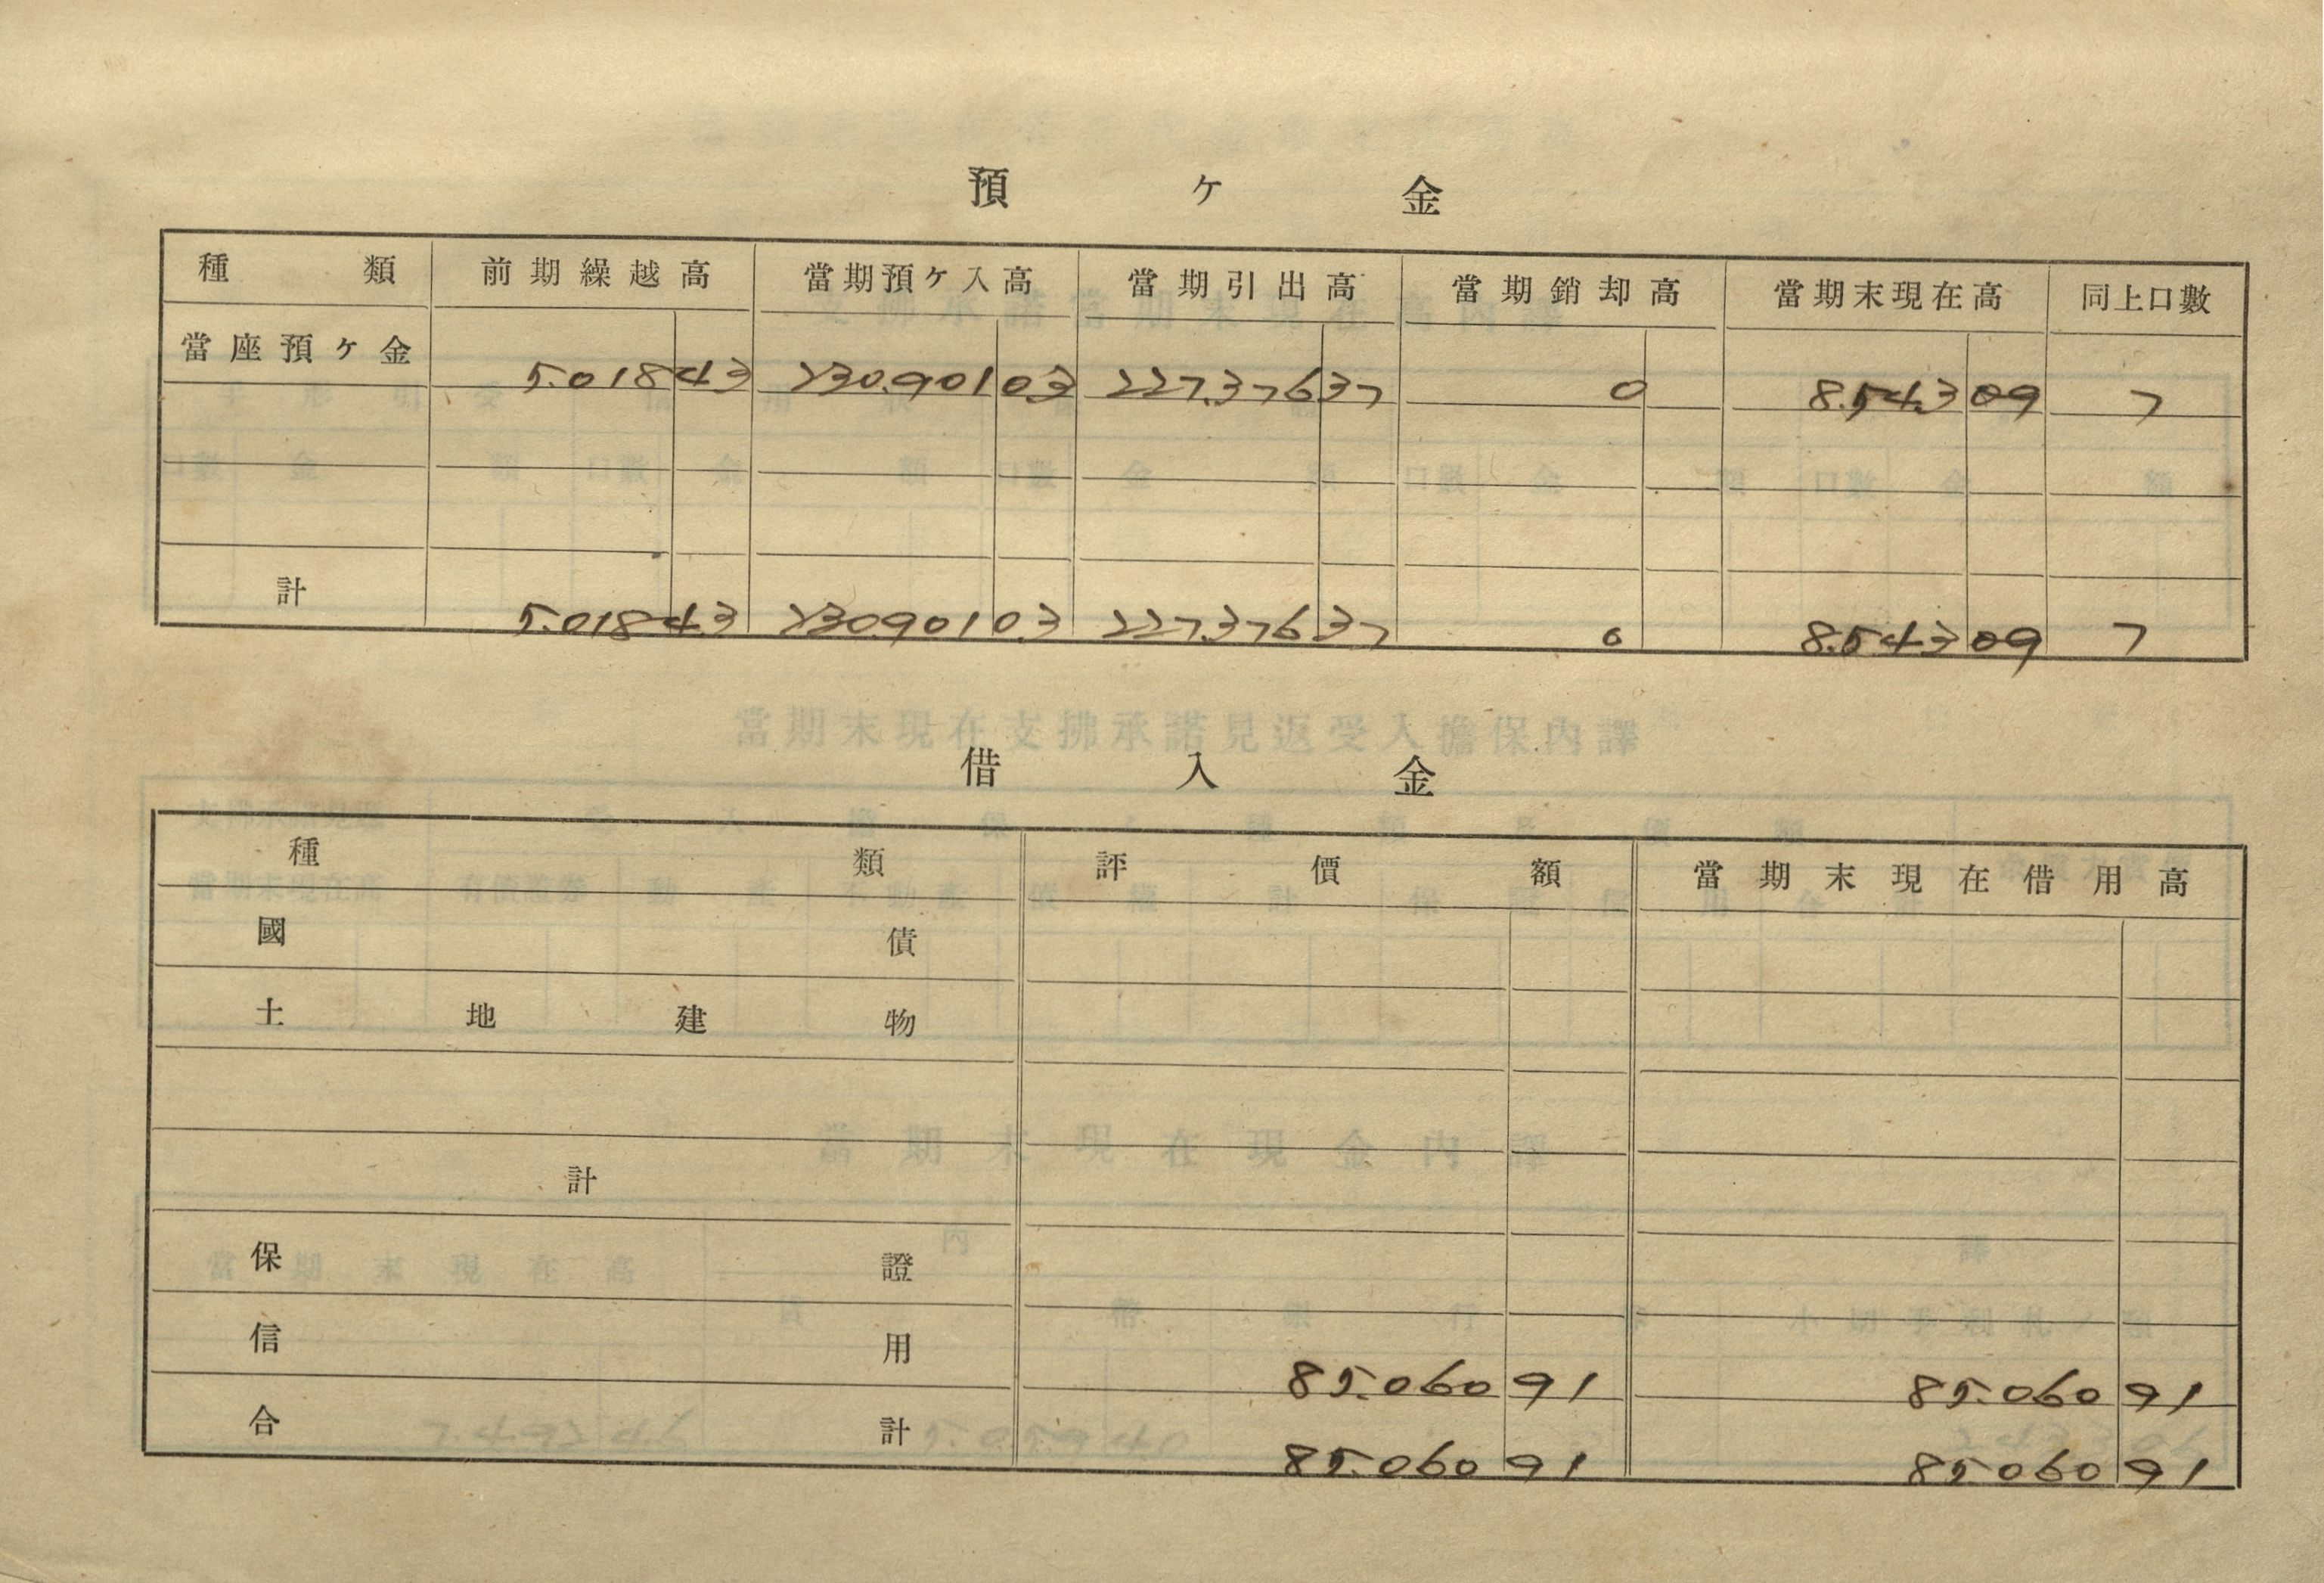 預ケ金
種類 前期繰越高 當期預ケ入高 當期引出高 當期銷却高 當期末現在高 同上口數
當座預ケ金 5.018 43 230.901 03 227.376 37 0 8.543 09 7
計 5.018 43 230.901 03 227.376 37 0 8.543 09 7
借入金
種類 評價額 當期末現在借用高
國債
土地建物
計
保證
信用 85.060 91 85.060 91
合計 85.060 91 85.060 91